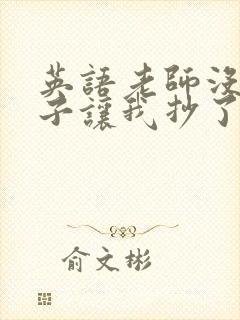 英語老師沒
子讓我抄了
俞文彬